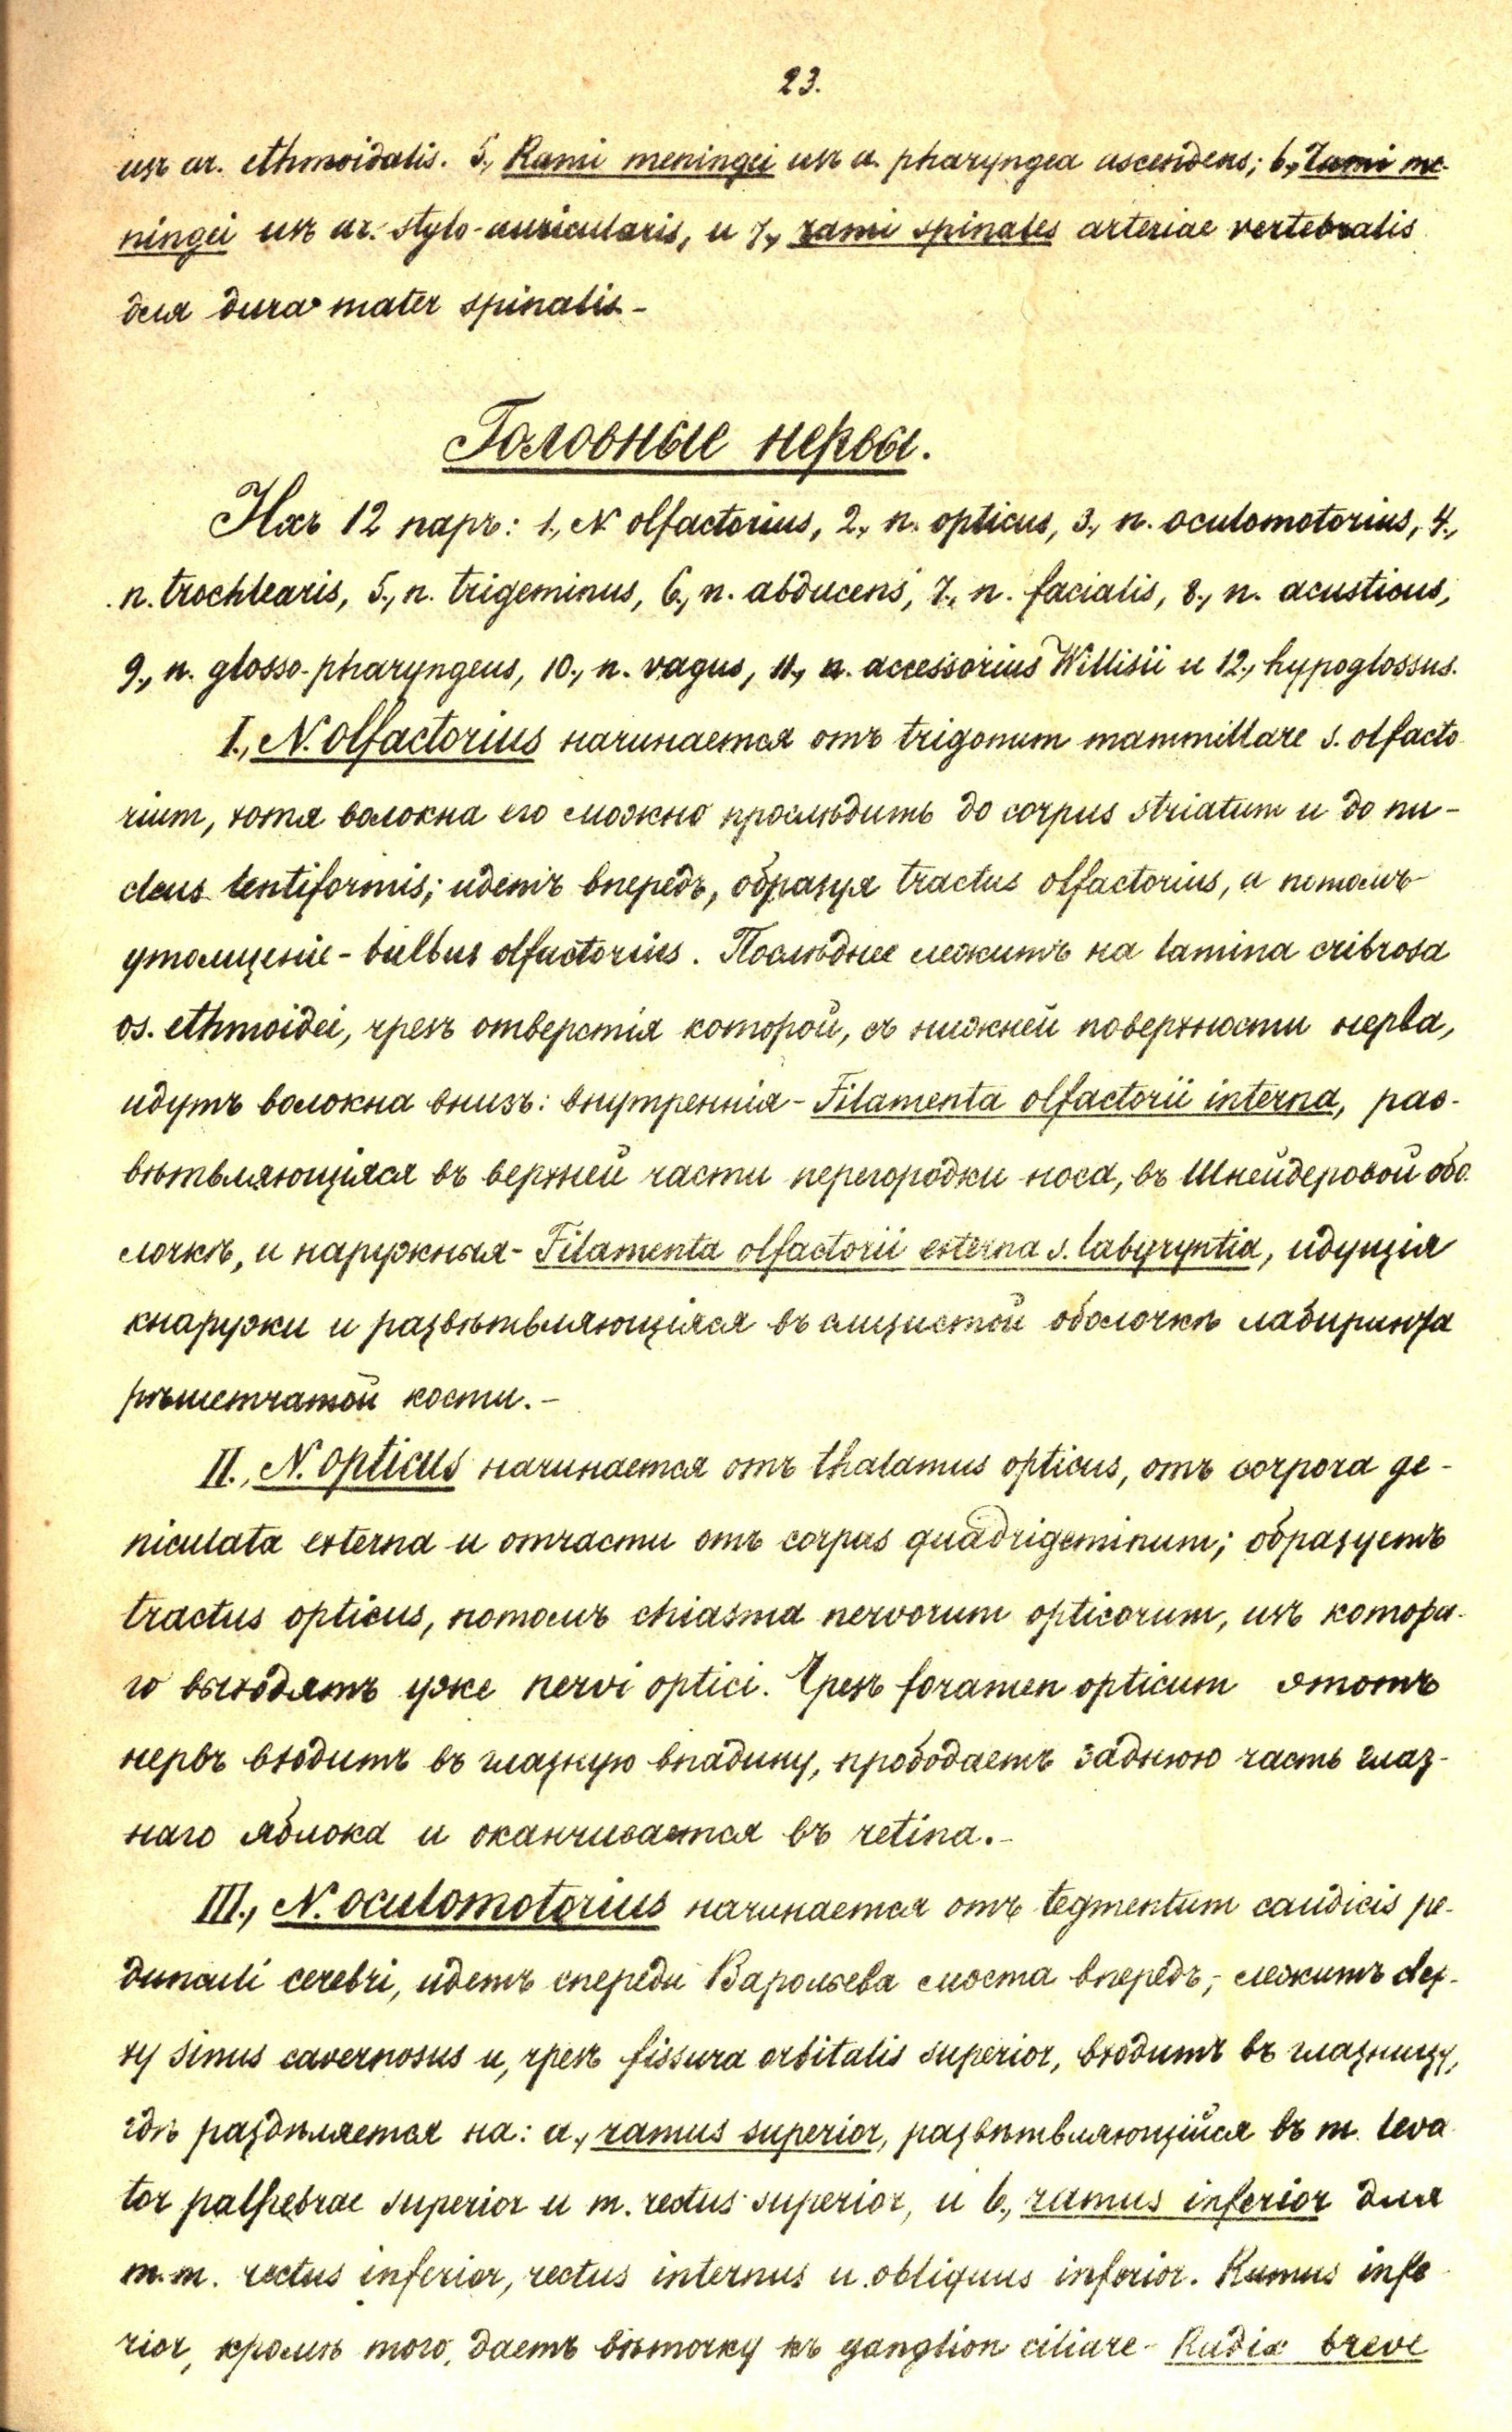 23.
изъ ar. ethmoidalis. 5., Rami meningei изъ a. pharyngea ascendens; 6., Rami me-
ningei изъ ar. stylo-auricularis, и 7., rami spinales arteriae vertebralis
для dura mater spinalis.-
Головные нервы.
Ихъ 12 паръ: 1., N olfactorius, 2., n. opticus, 3., n. oculomotorius, 4.,
n. trochlearis, 5., n. trigeminus, 6., n. abducens, 7., n. facialis, 8., n. acusticus,
9., n. glosso-pharyngeus, 10., n. vagus, 11., n. accessorius Willisii и 12., hypoglossus.
I., N. olfactorius начинается отъ trigonum mammillare s. olfacto-
rium, хотя волокна его можно прослѣдить до corpus striatum и до nu-
cleus lentiformis; идетъ впередъ, образуя tractus olfactorius, а потомъ
утолщеніе - bulbus olfactorius. Послѣднее лежитъ на lamina cribrosa
os. ethmoidei, чрезъ отверстія которой, съ нижней поверхности нерва,
идутъ волокна внизъ: внутреннія - Filamenta olfactorii interna, раз-
вѣтвляющіяся въ верхней части перегородки носа, въ Шнейдеровой обо-
лочкѣ, и наружныя - Filamenta olfactorii externa s. labyryntia, идущія
кнаружи и развѣтвляющіяся въ слизистой оболочкѣ лабиринѳа
рѣшетчатой кости.-
II., N. opticus начинается отъ thalamus opticus, отъ corpora ge-
niculata externa и отчасти отъ corpus quadrigeminum; образуетъ
tractus opticus, потомъ chiasma nervorum opticorum, изъ котора-
го выходятъ уже nervi optici. Чрезъ foramen opticum этотъ
нервъ входитъ въ глазную впадину, прободаетъ заднюю часть глаз-
наго яблока и оканчивается въ retina.-
III., N. oculomotorius начинается отъ tegmentum caudicis pe-
dunculi cerebri, идетъ спереди Варольева моста впередъ, лежитъ свер-
ху sinus cavernosus и, чрезъ fissura orbitalis superior, входитъ въ глазницу,
гдѣ раздѣляется на: a., ramus superior, развѣтвляющійся въ m. leva-
tor palpebrae superior и m. rectus superior, и b., ramus inferior для
m.m. rectus inferior, rectus internus и obliquus inferior. Ramus infe-
rior, кромѣ того, даетъ вѣточку къ ganglion ciliare - Radix breve